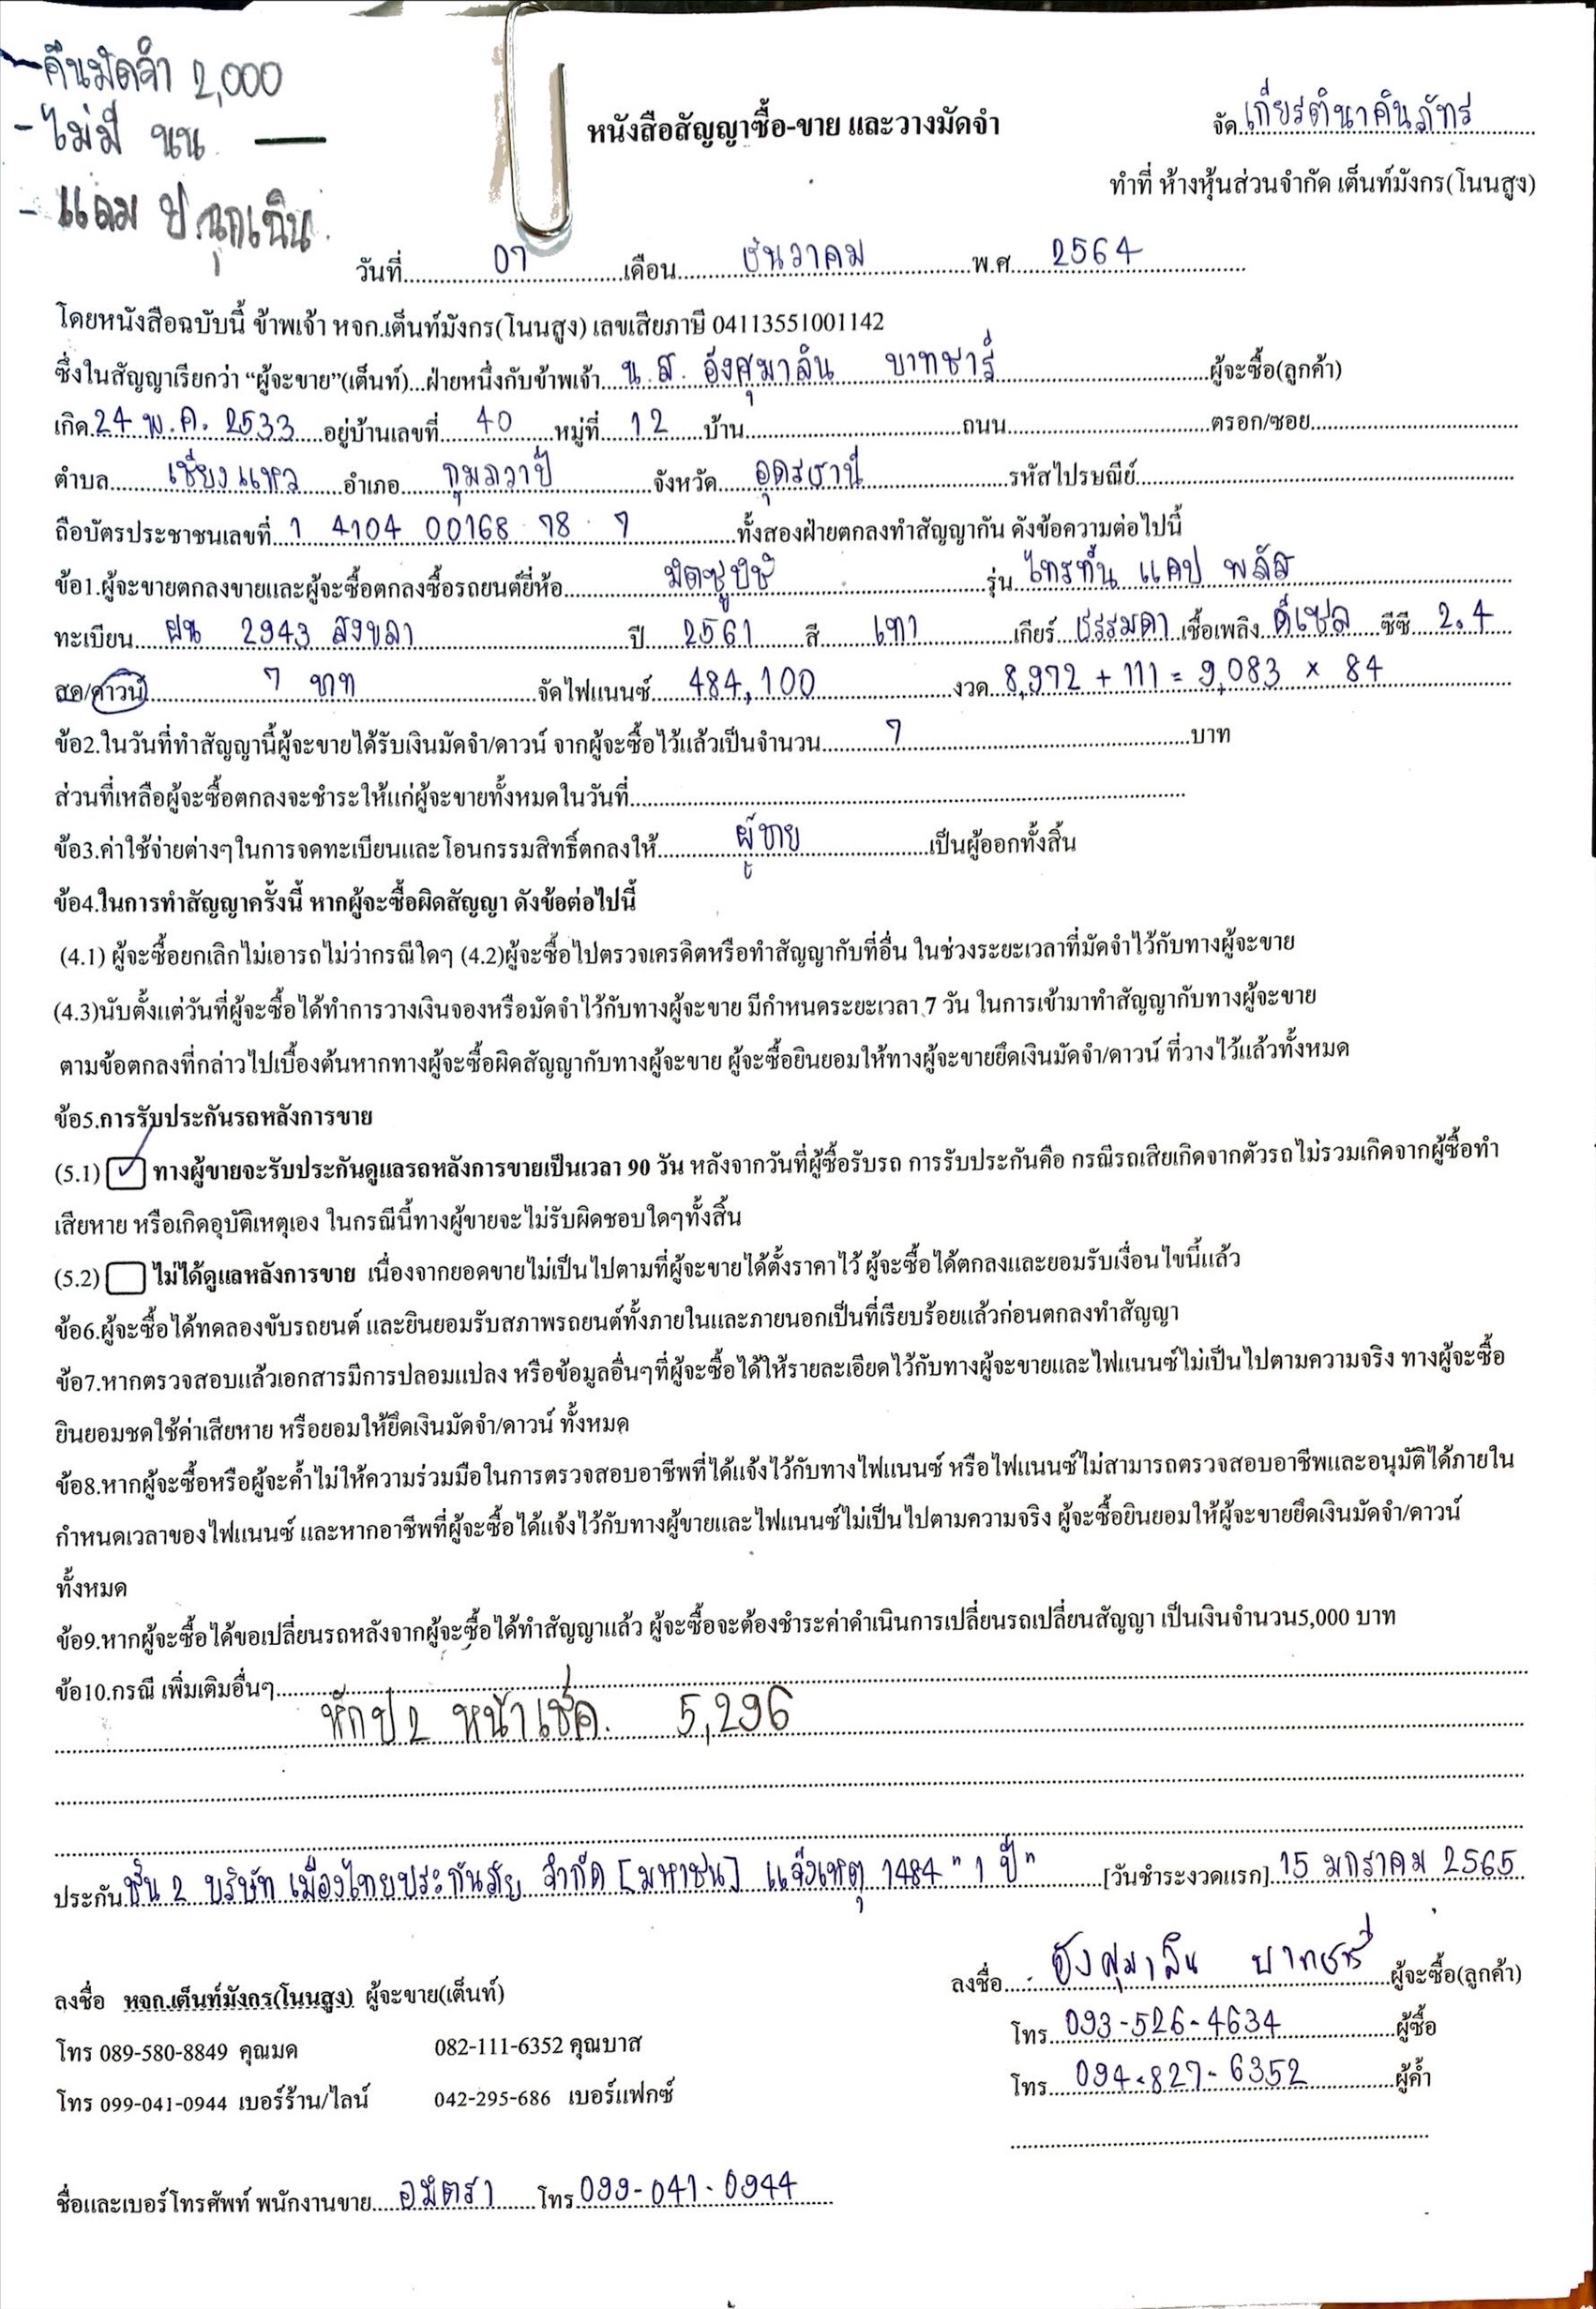 -คืนมัดจำ 2,000
-ไม่มี นน —
-แถม ป.ฉุกเฉิน
หนังสือสัญญาซื้อ-ขาย และวางมัดจำ
จัด เกียรตินาคินภัทร
ทำที่ ห้างหุ้นส่วนจำกัด เต็นท์มังกร(โนนสูง)
วันที่ 07 เดือน ธันวาคม พ.ศ. 2564
โดยหนังสือฉบับนี้ ข้าพเจ้า หจก.เต็นท์มังกร(โนนสูง) เลขเสียภาษี 04113551001142
ซึ่งในสัญญาเรียกว่า “ผู้จะขาย”(เต็นท์)...ฝ่ายหนึ่งกับข้าพเจ้า น.ส. อังศุมาลิน บาทชารี ผู้จะซื้อ(ลูกค้า)
เกิด 24 พ.ค. 2533 อยู่บ้านเลขที่ 40 หมู่ที่ 12 บ้าน ถนน ตรอก/ซอย
ตำบล เชียงแหว อำเภอ กุมภวาปี จังหวัด อุดรธานี รหัสไปรษณีย์
ถือบัตรประชาชนเลขที่ 1 4104 00168 78 7 ทั้งสองฝ่ายตกลงทำสัญญากัน ดังข้อความต่อไปนี้
ข้อ1.ผู้จะขายตกลงขายและผู้จะซื้อตกลงซื้อรถยนต์ยี่ห้อ มิตซูบิชิ รุ่น ไทรทั้น แคป พลัส
ทะเบียน ผน 2943 สงขลา ปี 2561 สี เทา เกียร์ ธรรมดา เชื้อเพลิง ดีเซล ซีซี 2.4
สด/ดาวน์ 7 บาท จัดไฟแนนซ์ 484,100 งวด 8,972 + 111 = 9,083 × 84
ข้อ2.ในวันที่ทำสัญญานี้ผู้จะขายได้รับเงินมัดจำ/ดาวน์ จากผู้จะซื้อไว้แล้วเป็นจำนวน 7 บาท
ส่วนที่เหลือผู้จะซื้อตกลงจะชำระให้แก่ผู้จะขายทั้งหมดในวันที่
ข้อ3.ค่าใช้จ่ายต่างๆในการจดทะเบียนและโอนกรรมสิทธิ์ตกลงให้ ผู้ขาย เป็นผู้ออกทั้งสิ้น
ข้อ4.ในการทำสัญญาครั้งนี้ หากผู้จะซื้อผิดสัญญา ดังข้อต่อไปนี้
(4.1) ผู้จะซื้อยกเลิกไม่เอารถไม่ว่ากรณีใดๆ (4.2)ผู้จะซื้อไปตรวจเครดิตหรือทำสัญญากับที่อื่น ในช่วงระยะเวลาที่มัดจำไว้กับทางผู้จะขาย
(4.3)นับตั้งแต่วันที่ผู้จะซื้อได้ทำการวางเงินจองหรือมัดจำไว้กับทางผู้จะขาย มีกำหนดระยะเวลา 7 วัน ในการเข้ามาทำสัญญากับทางผู้จะขาย
ตามข้อตกลงที่กล่าวไปเบื้องต้นหากทางผู้จะซื้อผิดสัญญากับทางผู้จะขาย ผู้จะซื้อยินยอมให้ทางผู้จะขายยึดเงินมัดจำ/ดาวน์ ที่วางไว้แล้วทั้งหมด
ข้อ5.การรับประกันรถหลังการขาย
(5.1) ✓ ทางผู้ขายจะรับประกันดูแลรถหลังการขายเป็นเวลา 90 วัน หลังจากวันที่ผู้ซื้อรับรถ การรับประกันคือ กรณีรถเสียเกิดจากตัวรถไม่รวมเกิดจากผู้ซื้อทำ
เสียหาย หรือเกิดอุบัติเหตุเอง ในกรณีนี้ทางผู้ขายจะไม่รับผิดชอบใดๆทั้งสิ้น
(5.2) ไม่ได้ดูแลหลังการขาย เนื่องจากยอดขายไม่เป็นไปตามที่ผู้จะขายได้ตั้งราคาไว้ ผู้จะซื้อได้ตกลงและยอมรับเงื่อนไขนี้แล้ว
ข้อ6.ผู้จะซื้อได้ทดลองขับรถยนต์ และยินยอมรับสภาพรถยนต์ทั้งภายในและภายนอกเป็นที่เรียบร้อยแล้วก่อนตกลงทำสัญญา
ข้อ7.หากตรวจสอบแล้วเอกสารมีการปลอมแปลง หรือข้อมูลอื่นๆที่ผู้จะซื้อได้ให้รายละเอียดไว้กับทางผู้จะขายและไฟแนนซ์ไม่เป็นไปตามความจริง ทางผู้จะซื้อ
ยินยอมชดใช้ค่าเสียหาย หรือยอมให้ยึดเงินมัดจำ/ดาวน์ ทั้งหมด
ข้อ8.หากผู้จะซื้อหรือผู้จะค้ำไม่ให้ความร่วมมือในการตรวจสอบอาชีพที่ได้แจ้งไว้กับทางไฟแนนซ์ หรือไฟแนนซ์ไม่สามารถตรวจสอบอาชีพและอนุมัติได้ภายใน
กำหนดเวลาของไฟแนนซ์ และหากอาชีพที่ผู้จะซื้อได้แจ้งไว้กับทางผู้ขายและไฟแนนซ์ไม่เป็นไปตามความจริง ผู้จะซื้อยินยอมให้ผู้จะขายยึดเงินมัดจำ/ดาวน์
ทั้งหมด
ข้อ9.หากผู้จะซื้อได้ขอเปลี่ยนรถหลังจากผู้จะซื้อได้ทำสัญญาแล้ว ผู้จะซื้อจะต้องชำระค่าดำเนินการเปลี่ยนรถเปลี่ยนสัญญา เป็นเงินจำนวน5,000 บาท
ข้อ10.กรณี เพิ่มเติมอื่นๆ
หักป2 หน้าเช็ค. 5,296
ประกัน ชั้น 2 บริษัท เมืองไทยประกันภัย จำกัด [มหาชน] แจ้งเหตุ 1484 "1 ปี" [วันชำระงวดแรก] 15 มกราคม 2565
ลงชื่อ อังศุมาลิน บาทชารี ผู้จะซื้อ(ลูกค้า)
ลงชื่อ หจก.เต็นท์มังกร(โนนสูง) ผู้จะขาย(เต็นท์)
โทร 093-526-4634 ผู้ซื้อ
โทร 089-580-8849 คุณมด 082-111-6352 คุณบาส
โทร 094-827-6352 ผู้ค้ำ
โทร 099-041-0944 เบอร์ร้าน/ไลน์ 042-295-686 เบอร์แฟกซ์
ชื่อและเบอร์โทรศัพท์ พนักงานขาย อมิตรา โทร 099-041-0944